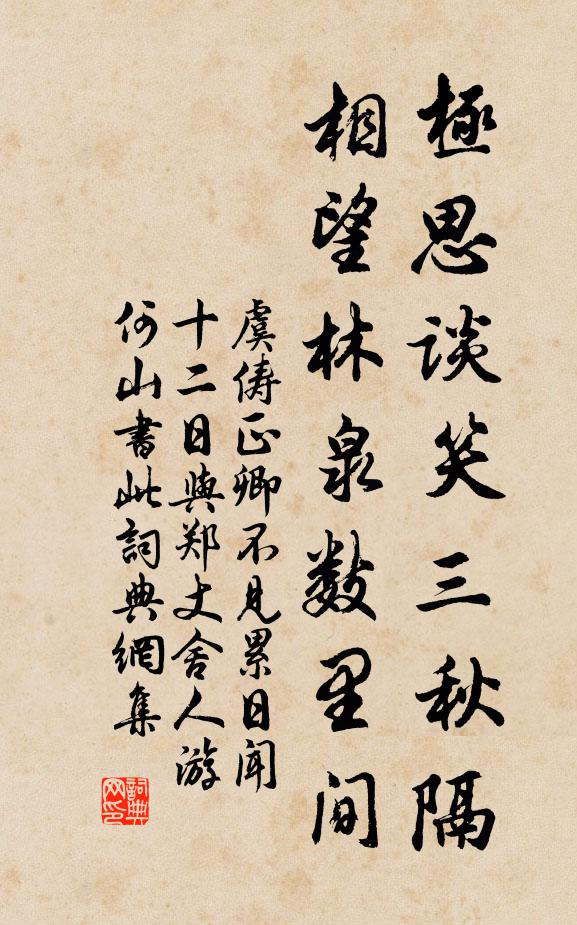 極思談笑三秋隔
相望林泉数里间
虞儔正卿不見累日聞
十二日與郑丈舍人游
何山書此詞典網集
詞典网印